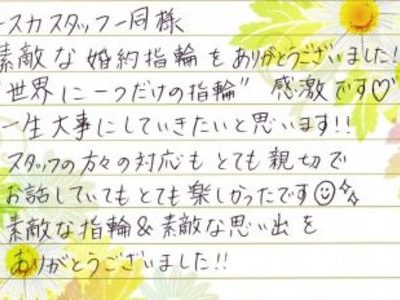 ースカスタッフ一同様
素敵な婚約指輪をありがとうございました!
"世界に一つだけの指輪" 感激です♡
一生大事にしていきたいと思います!!
スタッフの方々の対応もとても親切で
お話していてもとても楽しかったです☺✨
素敵な指輪&素敵な思い出を
ありがとうございました!!